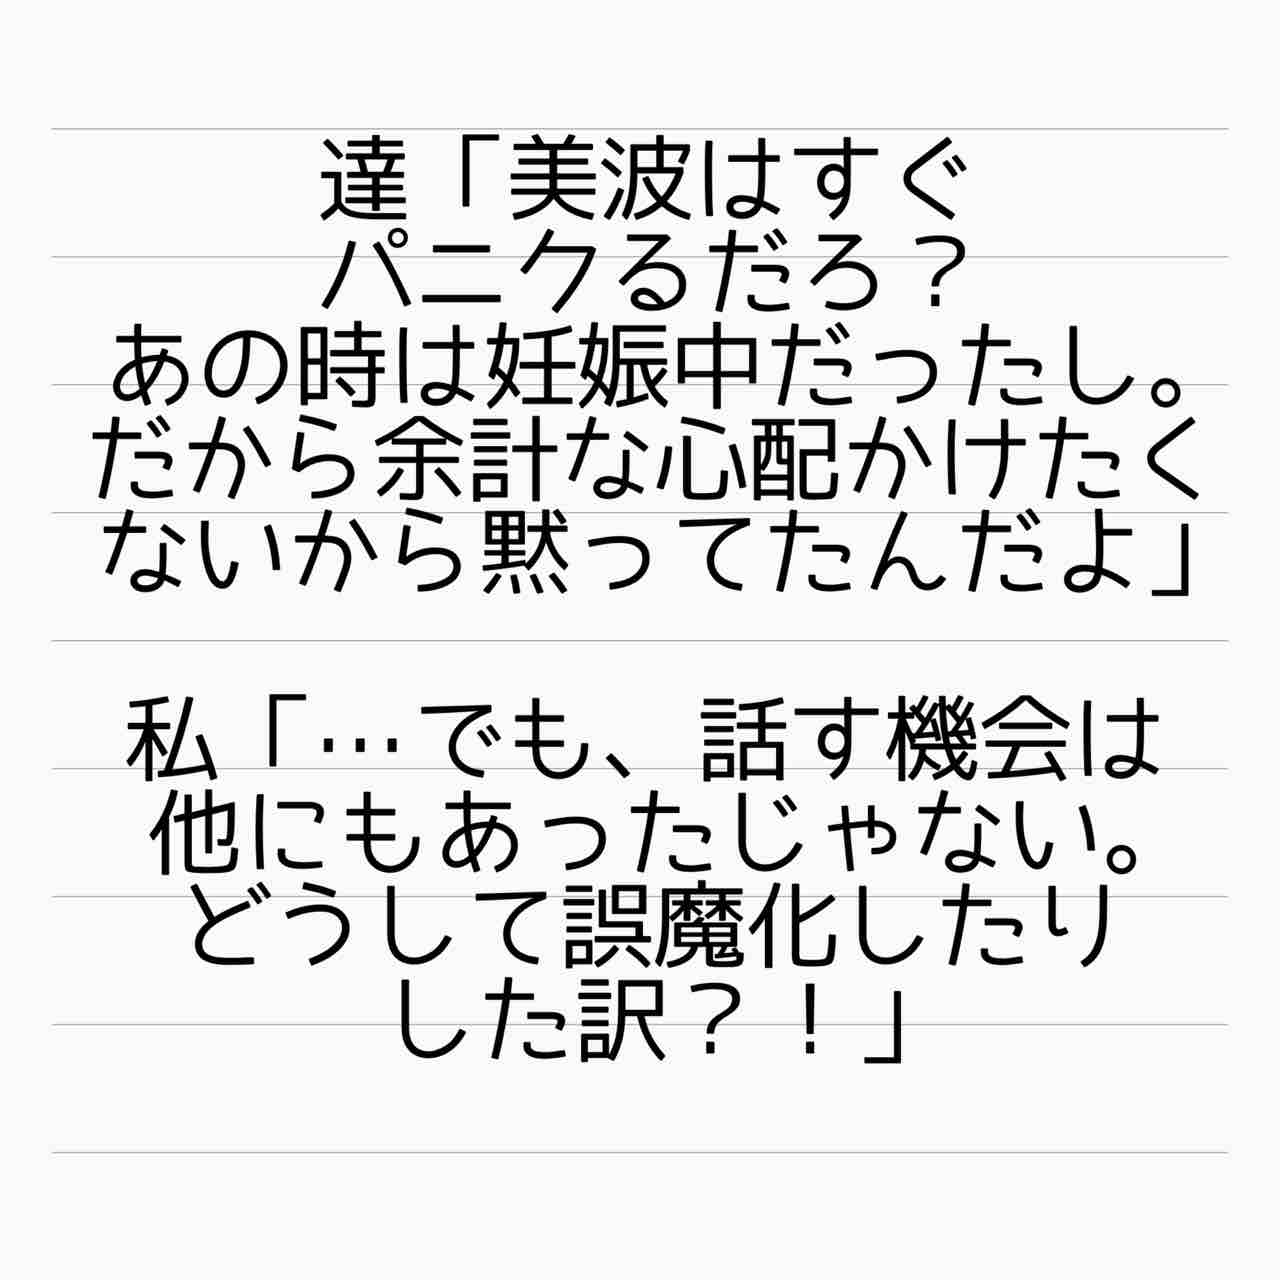 達「美波はすぐ
パニクるだろ？
あの時は妊娠中だったし。
だから余計な心配かけたく
ないから黙ってたんだよ」
私「…でも、話す機会は
他にもあったじゃない。
どうして誤魔化したり
した訳？！」